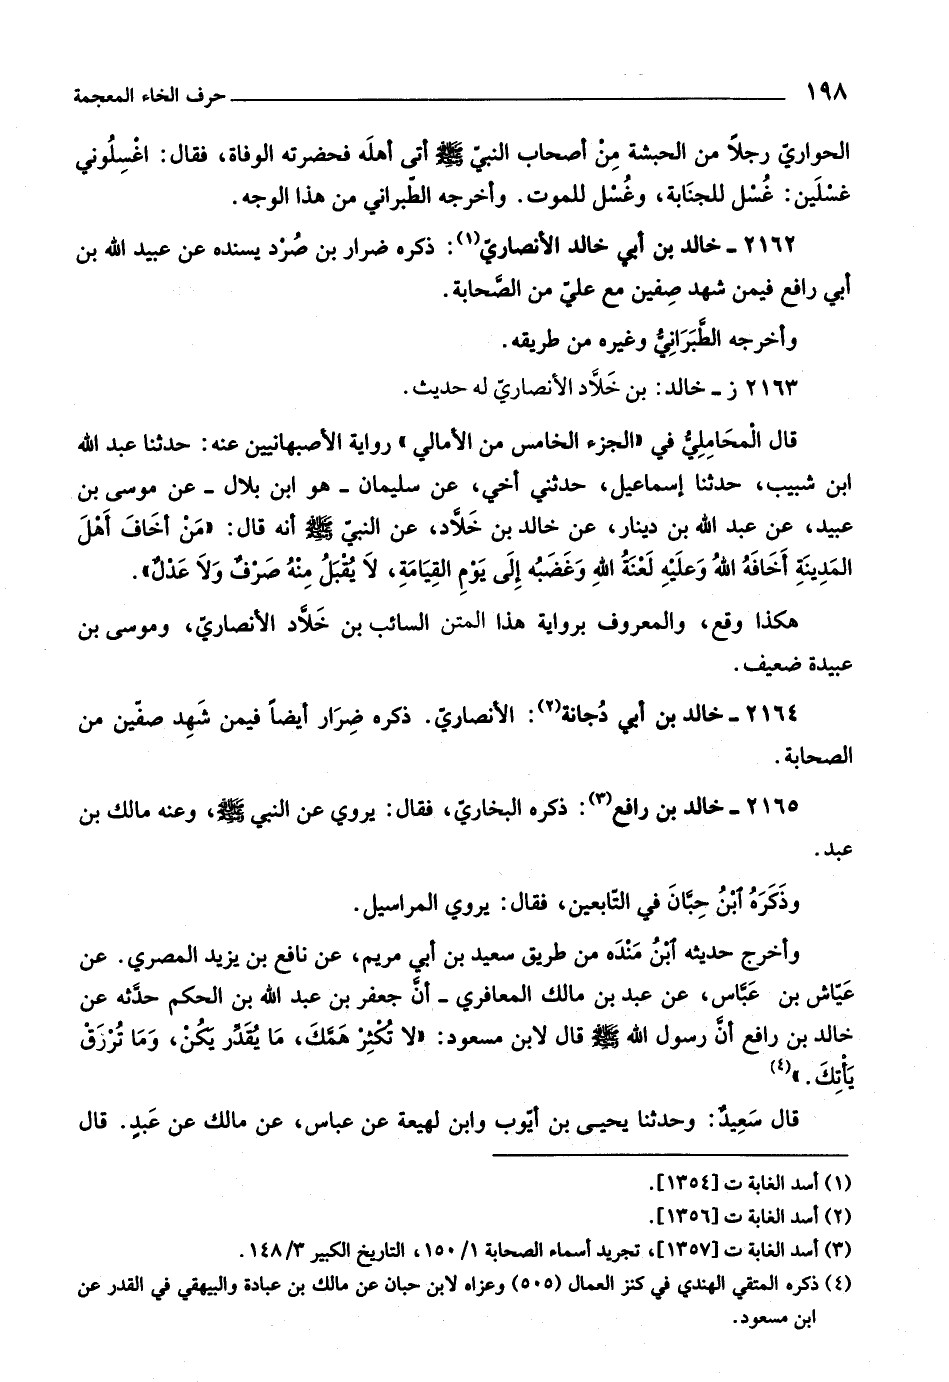 ١٩٨ حرف الخاء المعجمة
الحواريّ رجلاً من الحبشة مِنْ أصحاب النبيّ ﷺ أتى أهلَه فحضرته الوفاة، فقال: اغْسِلُوني
غسْلَين: غُسْل للجنَابة، وغُسْل للموت. وأخرجه الطّبراني من هذا الوجه.
٢١٦٢ ـ خالد بن أبي خالد الأنصاريّ(١): ذكره ضرار بن صُرْد يسنده عن عبيد الله بن
أبي رافع فيمن شهد صِفين مع عليّ من الصَّحابة.
وأخرجه الطَّبَرَانِيُّ وغيره من طريقه.
٢١٦٣ ز ـ خالد: بن خَلَّاد الأنصاريّ له حديث.
قال الْمحَامِلِيُّ في «الجزء الخامس من الأمالي» رواية الأصبهانيين عنه: حدثنا عبد الله
ابن شبيب، حدثنا إسماعيل، حدثني أخي، عن سليمان ـ هو ابن بلال ـ عن موسى بن
عبيد، عن عبد الله بن دينار، عن خالد بن خَلَّاد، عن النبيّ ﷺ أنه قال: «مَنْ أخَافَ أهْلَ
المَدِينَةِ أَخَافَهُ اللهُ وَعلَيْهِ لَعْنَةُ اللهِ وَغَضَبُه إِلَى يَوْمِ القِيَامَةِ، لَا يُقْبَلُ مِنْهُ صَرْفٌ وَلَا عَدْلٌ».
هكذا وقع، والمعروف برواية هذا المتن السائب بن خَلَّاد الأنصاريّ، وموسى بن
عبيدة ضعيف.
٢١٦٤ ـ خالد بن أبي دُجانة(٢): الأنصاريّ. ذكره ضِرَار أيضاً فيمن شَهِد صفّين من
الصحابة.
٢١٦٥ ـ خالد بن رافع(٣): ذكره البخاريّ، فقال: يروي عن النبي ﷺ، وعنه مالك بن
عبد.
وذَكَرَهُ ٱبْنُ حِبَّانَ في التّابعين، فقال: يروي المراسيل.
وأخرج حديثه ٱبْنُ مَنْدَه من طريق سعيد بن أبي مريم، عن نافع بن يزيد المصري. عن
عَيّاش بن عَبَّاس، عن عبد بن مالك المعافري ـ أنَّ جعفر بن عبد الله بن الحكم حدَّثه عن
خالد بن رافع أنَّ رسول الله ﷺ قال لابن مسعود: «لا تُكْثِرْ هَمَّكَ، مَا يُقَدَّر يَكُنْ، وَمَا تُرْزَقْ
يَأْتِكَ.»(٤)
قال سَعِيدٌ: وحدثنا يحيى بن أيّوب وابن لهيعة عن عباس، عن مالك عن عَبدٍ. قال
(١) أسد الغابة ت [١٣٥٤].
(٢) أسد الغابة ت [١٣٥٦].
(٣) أسد الغابة ت [١٣٥٧]، تجريد أسماء الصحابة ١/ ١٥٠، التاريخ الكبير ٣/ ١٤٨.
(٤) ذكره المتقي الهندي في كنز العمال (٥٠٥) وعزاه لابن حبان عن مالك بن عبادة والبيهقي في القدر عن
ابن مسعود.